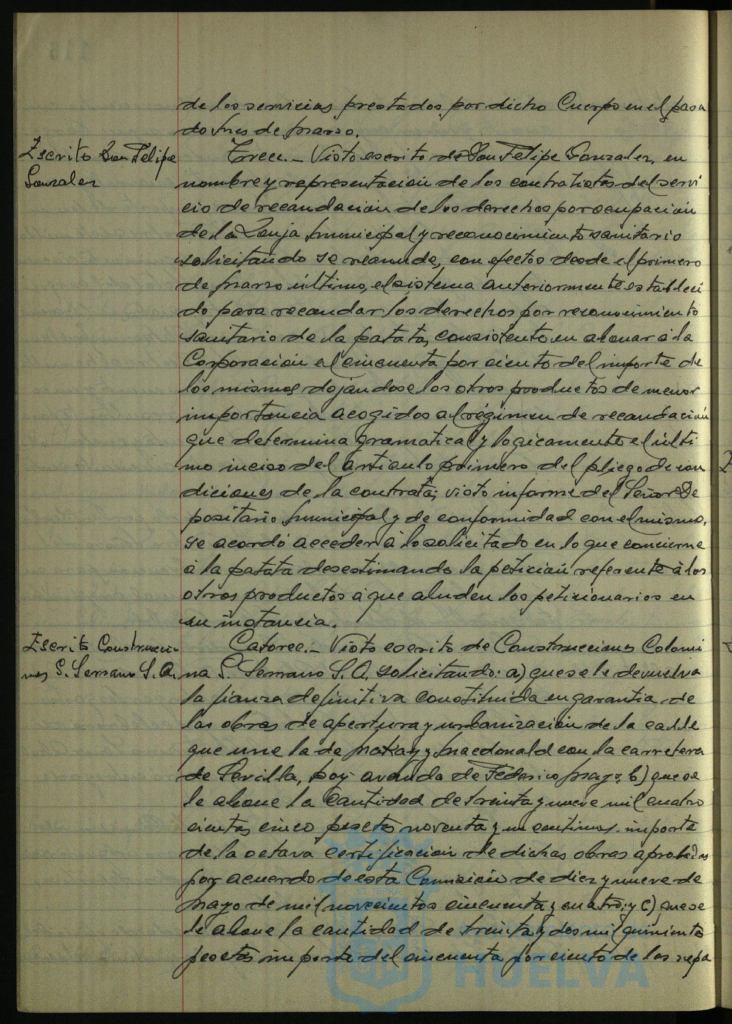 de los servicios prestados por dicho Cuerpo en el pasa
do tres de marzo.
Escrito Don Felipe
Gonzalez
Trece.- Visto escrito de Don Felipe Gonzalez, en
nombre y representacion de los contratistas del servi
cio de recaudacion de los derechos por ocupacion
de la Lonja Municipal y reconocimiento sanitario
solicitando se reanude, con efectos desde el primero
de marzo último, el sistema anteriormente estableci
do para recaudar los derechos por reconocimiento
sanitario de la patata, consistente en abonar á la
Corporacion el cincuenta por ciento del importe de
los mismos dejandose los otros productos de menor
importancia acogidos al régimen de recaudacion
que determina gramatical y logicamente el últi
mo inciso del articulo primero del pliego de con
diciones de la contrata; visto informe del Señor De
positario Municipal y de conformidad con el mismo,
se acordó acceder á lo solicitado en lo que concierne
á la patata desestimando la peticion referente á los
otros productos á que aluden los peticionarios en
su instancia.
Escrito Construccio
nes S. Serrano S.A.
Catorce.- Visto escrito de Construcciones Colomi
na S. Serrano S.A. solicitando: a) que se le devuelva
la fianza definitiva constituida en garantia de
las obras de apertura y urbanizacion de la calle
que une la de Mackay y Macdonald con la carretera
de Sevilla, hoy avenida de Federico Mayo; b) que se
le abone la cantidad de treinta y nueve mil cuatro
cientas cinco pesetas noventa y un centimos importe
de la octava certificacion de dichas obras aprobadas
por acuerdo de esta Comision de diez y nueve de
Mayo de mil novecientos cincuenta y cuatro; y c) que se
le abone la cantidad de treinta y dos mil quinientas
pesetas importe del cincuenta por ciento de las repa
HUELVA